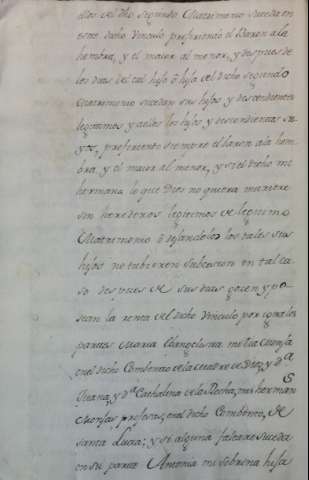 dicos del dho segundo Matrimonio suceda en
este dicho Vinculo prefiriendo el Baron a la
hembra, y el maior al menor, y despues de
los dias del tal hijo ô hija del dicho segundo
Matrimonio sucedan sus hijos y descendientes
legitimos y a ellos los hijos y descendientes su-
yos, prefiriento siempre el baron a la hem
bra, y el maior al menor, y si el dicho mi
hermano lo que Dios no quiera muriere
sin herederos legitimos de legitimo
Matrimonio ô dejandolos los tales sus
hijos no tubieren subcesion en tal ca
so despues de sus dias gocen y po-
sean la renta del dicho Vinculo por iguales
partes Maria Evangelista mi tia Monja
en el dicho Combento de la Madre de Dios, y Dª
Juana, y Dª Cathalina de la Rocha, mis hermanas
Monjas profesas, en el dicho Combento, de
Santa Lucia; y si alguna faltare suceda
en su parte Antonia mi sobrina hija